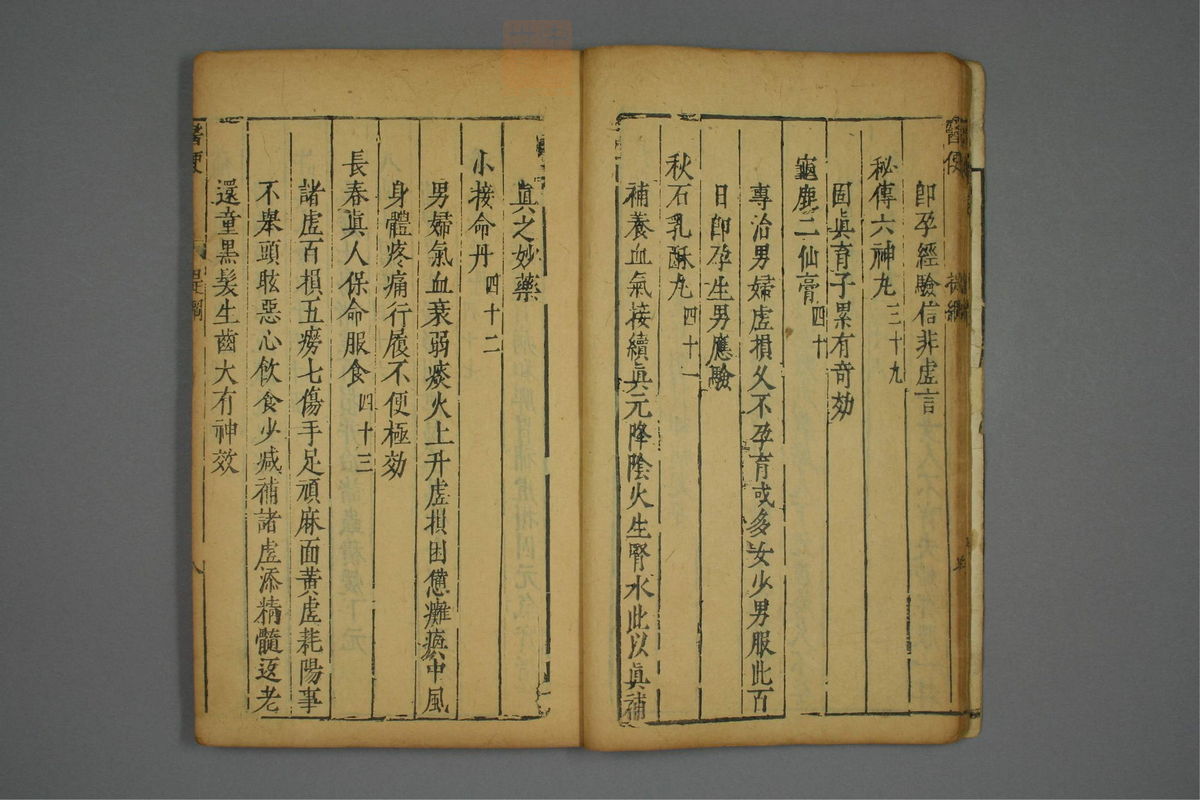 醫便
提綱
卽孕經驗信非虛言
秘傳六神丸 三十九
固眞育子累有奇効
龜鹿二仙膏 四十
專治男婦虛損久不孕育或多女少男服此百
日卽孕生男應驗
秋石乳酥丸 四十一
補養血氣接續眞元降陰火生腎水此以眞補
眞之妙藥
小接命丹 四十二
男婦氣血衰弱痰火上升虛損困憊癱瘓中風
身體疼痛行履不便極効
長春眞人保命服食 四十三
諸虛百損五癆七傷手足頑麻面黃虛耗陽事
不舉頭眩惡心飲食少减補諸虛添精髓返老
還童黑髮生齒大有神效
醫便
提綱
八